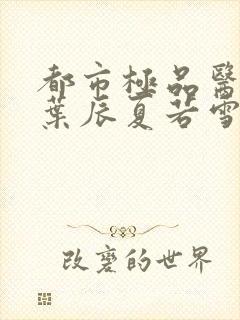 都市極品醫
葉辰夏若雪
改變的世界